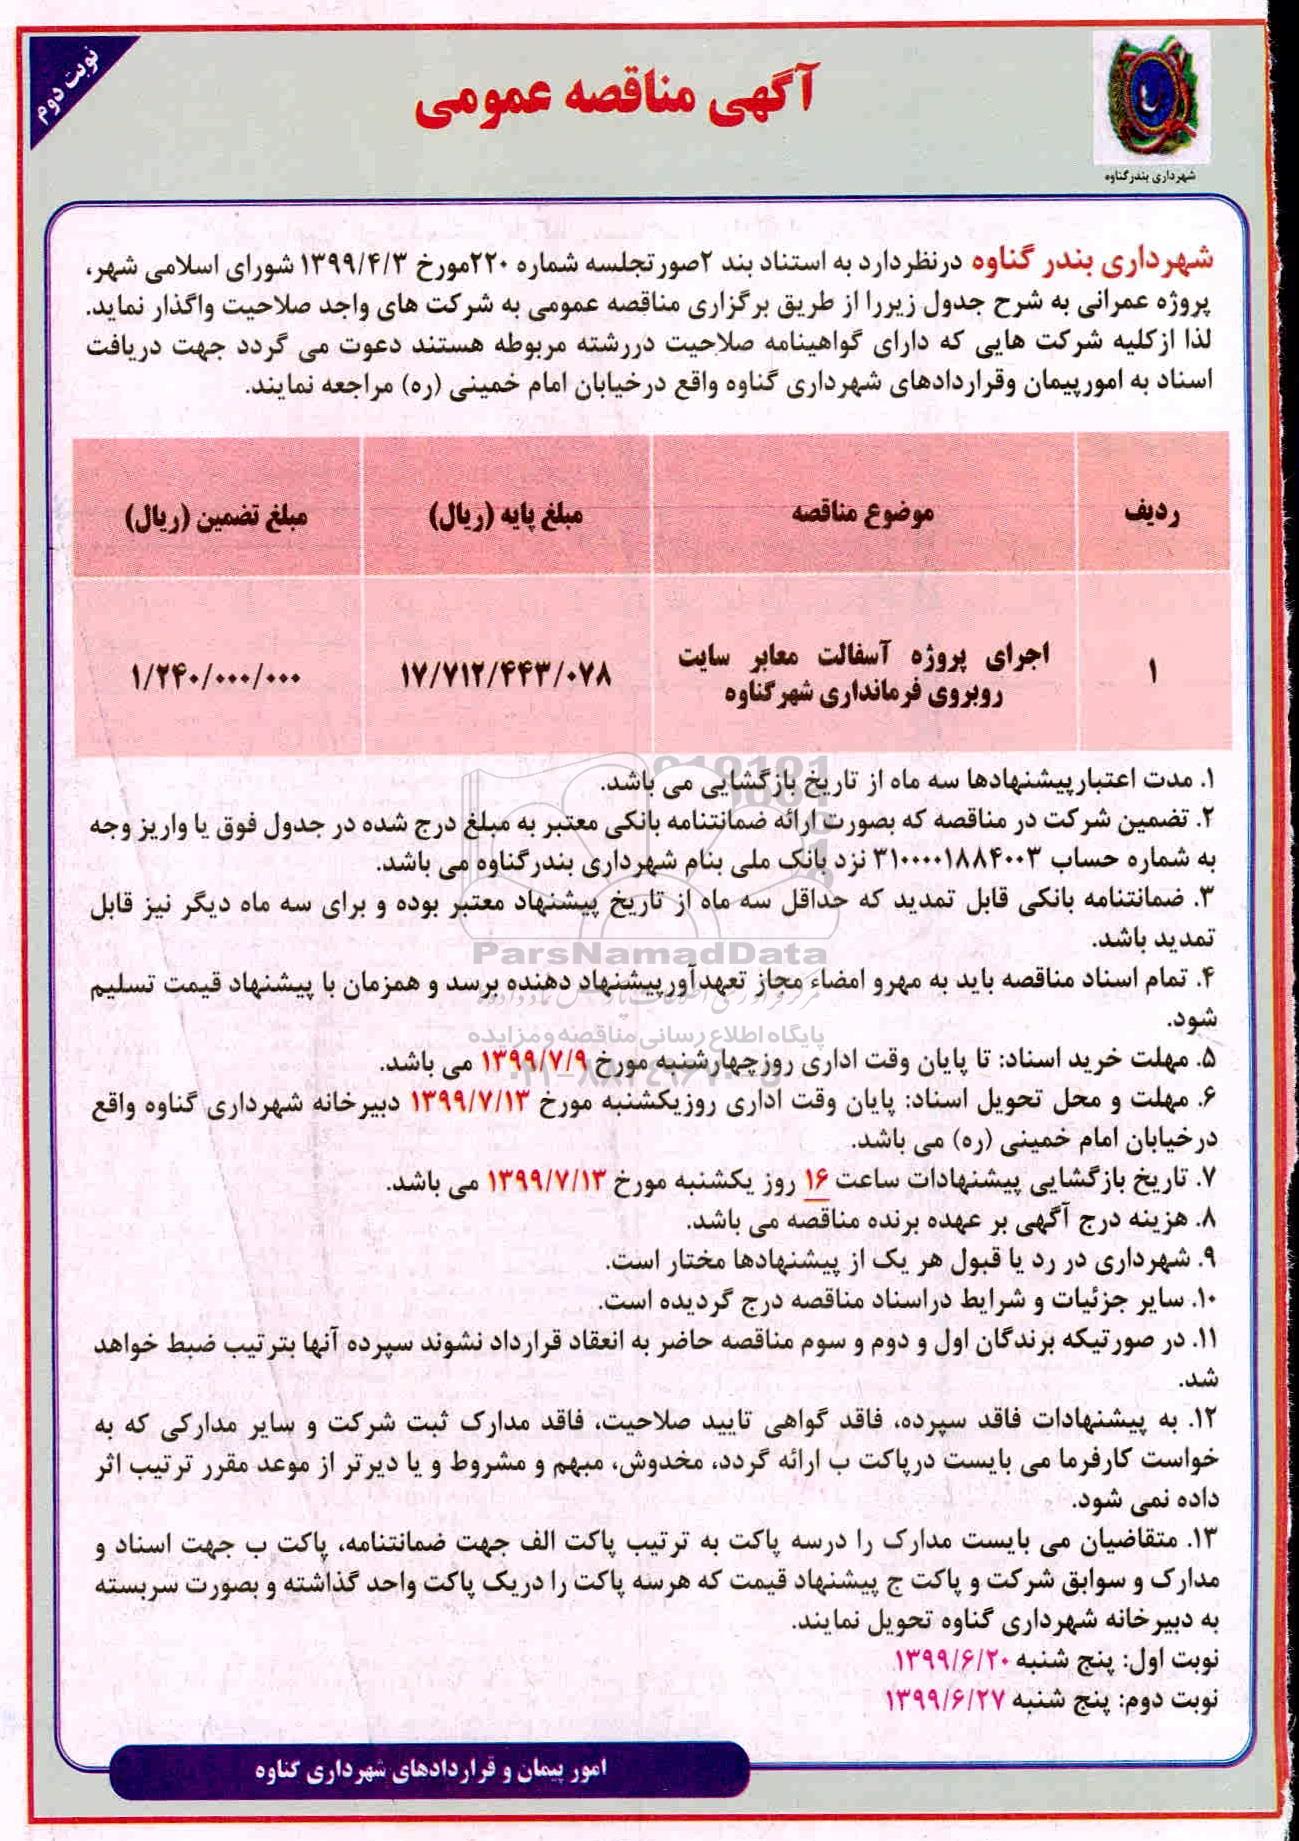 نوبت دوم
آگهی مناقصه عمومی
شهرداری بندرگناوه
شهرداری بندر گناوه درنظردارد به استناد بند ۲صورتجلسه شماره ۲۲۰مورخ ۱۳۹۹/۴/۳ شورای اسلامی شهر،
پروژه عمرانی به شرح جدول زیررا از طریق برگزاری مناقصه عمومی به شرکت های واجد صلاحیت واگذار نماید.
لذا ازکلیه شرکت هایی که دارای گواهینامه صلاحیت دررشته مربوطه هستند دعوت می گردد جهت دریافت
اسناد به امورپیمان وقراردادهای شهرداری گناوه واقع درخیابان امام خمینی (ره) مراجعه نمایند.
ردیف موضوع مناقصه مبلغ پایه (ریال) مبلغ تضمین (ریال)
۱ اجرای پروژه آسفالت معابر سایت روبروی فرمانداری شهرگناوه ۱۷/۷۱۲/۴۴۳/۰۷۸ ۱/۲۴۰/۰۰۰/۰۰۰
۱. مدت اعتبارپیشنهادها سه ماه از تاریخ بازگشایی می باشد.
۲. تضمین شرکت در مناقصه که بصورت ارائه ضمانتنامه بانکی معتبر به مبلغ درج شده در جدول فوق یا واریز وجه
به شماره حساب ۳۱۰۰۰۰۱۸۸۴۰۰۳ نزد بانک ملی بنام شهرداری بندرگناوه می باشد.
۳. ضمانتنامه بانکی قابل تمدید که حداقل سه ماه از تاریخ پیشنهاد معتبر بوده و برای سه ماه دیگر نیز قابل
تمدید باشد.
ParsNamadData
۴. تمام اسناد مناقصه باید به مهرو امضاء مجاز تعهدآورپیشنهاد دهنده برسد و همزمان با پیشنهاد قیمت تسلیم
شود.
پایگاه اطلاع رسانی مناقصه و مزایده
۵. مهلت خرید اسناد: تا پایان وقت اداری روزچهارشنبه مورخ ۱۳۹۹/۷/۹ می باشد.
۶. مهلت و محل تحویل اسناد: پایان وقت اداری روزیکشنبه مورخ ۱۳۹۹/۷/۱۳ دبیرخانه شهرداری گناوه واقع
درخیابان امام خمینی (ره) می باشد.
۷. تاریخ بازگشایی پیشنهادات ساعت ۱۶ روز یکشنبه مورخ ۱۳۹۹/۷/۱۳ می باشد.
۸. هزینه درج آگهی بر عهده برنده مناقصه می باشد.
۹. شهرداری در رد یا قبول هر یک از پیشنهادها مختار است.
۱۰. سایر جزئیات و شرایط دراسناد مناقصه درج گردیده است.
۱۱. در صورتیکه برندگان اول و دوم و سوم مناقصه حاضر به انعقاد قرارداد نشوند سپرده آنها بترتیب ضبط خواهد
شد.
۱۲. به پیشنهادات فاقد سپرده، فاقد گواهی تایید صلاحیت، فاقد مدارک ثبت شرکت و سایر مدارکی که به
خواست کارفرما می بایست درپاکت ب ارائه گردد، مخدوش، مبهم و مشروط و یا دیرتر از موعد مقرر ترتیب اثر
داده نمی شود.
۱۳. متقاضیان می بایست مدارک را درسه پاکت به ترتیب پاکت الف جهت ضمانتنامه، پاکت ب جهت اسناد و
مدارک و سوابق شرکت و پاکت ج پیشنهاد قیمت که هرسه پاکت را دریک پاکت واحد گذاشته و بصورت سربسته
به دبیرخانه شهرداری گناوه تحویل نمایند.
نوبت اول: پنج شنبه ۱۳۹۹/۶/۲۰
نوبت دوم: پنج شنبه ۱۳۹۹/۶/۲۷
امور پیمان و قراردادهای شهرداری گناوه